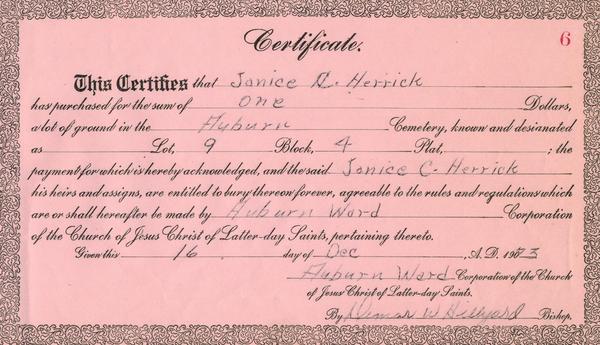 6
Certificate.
This Certifies that Janice C. Herrick
has purchased for the sum of One Dollars,
a lot of ground in the Auburn Cemetery, known and designated
as Lot, 9 Block, 4 Plat, ; the
payment for which is hereby acknowledged, and the said Janice C. Herrick
his heirs and assigns, are entitled to bury thereon forever, agreeable to the rules and regulations which
are or shall hereafter be made by Auburn Ward Corporation
of the Church of Jesus Christ of Latter-day Saints, pertaining thereto.
Given this 16 day of Dec A. D. 19
Auburn Ward Corporation of the Church
of Jesus Christ of Latter-day Saints.
By W Hillyard Bishop.